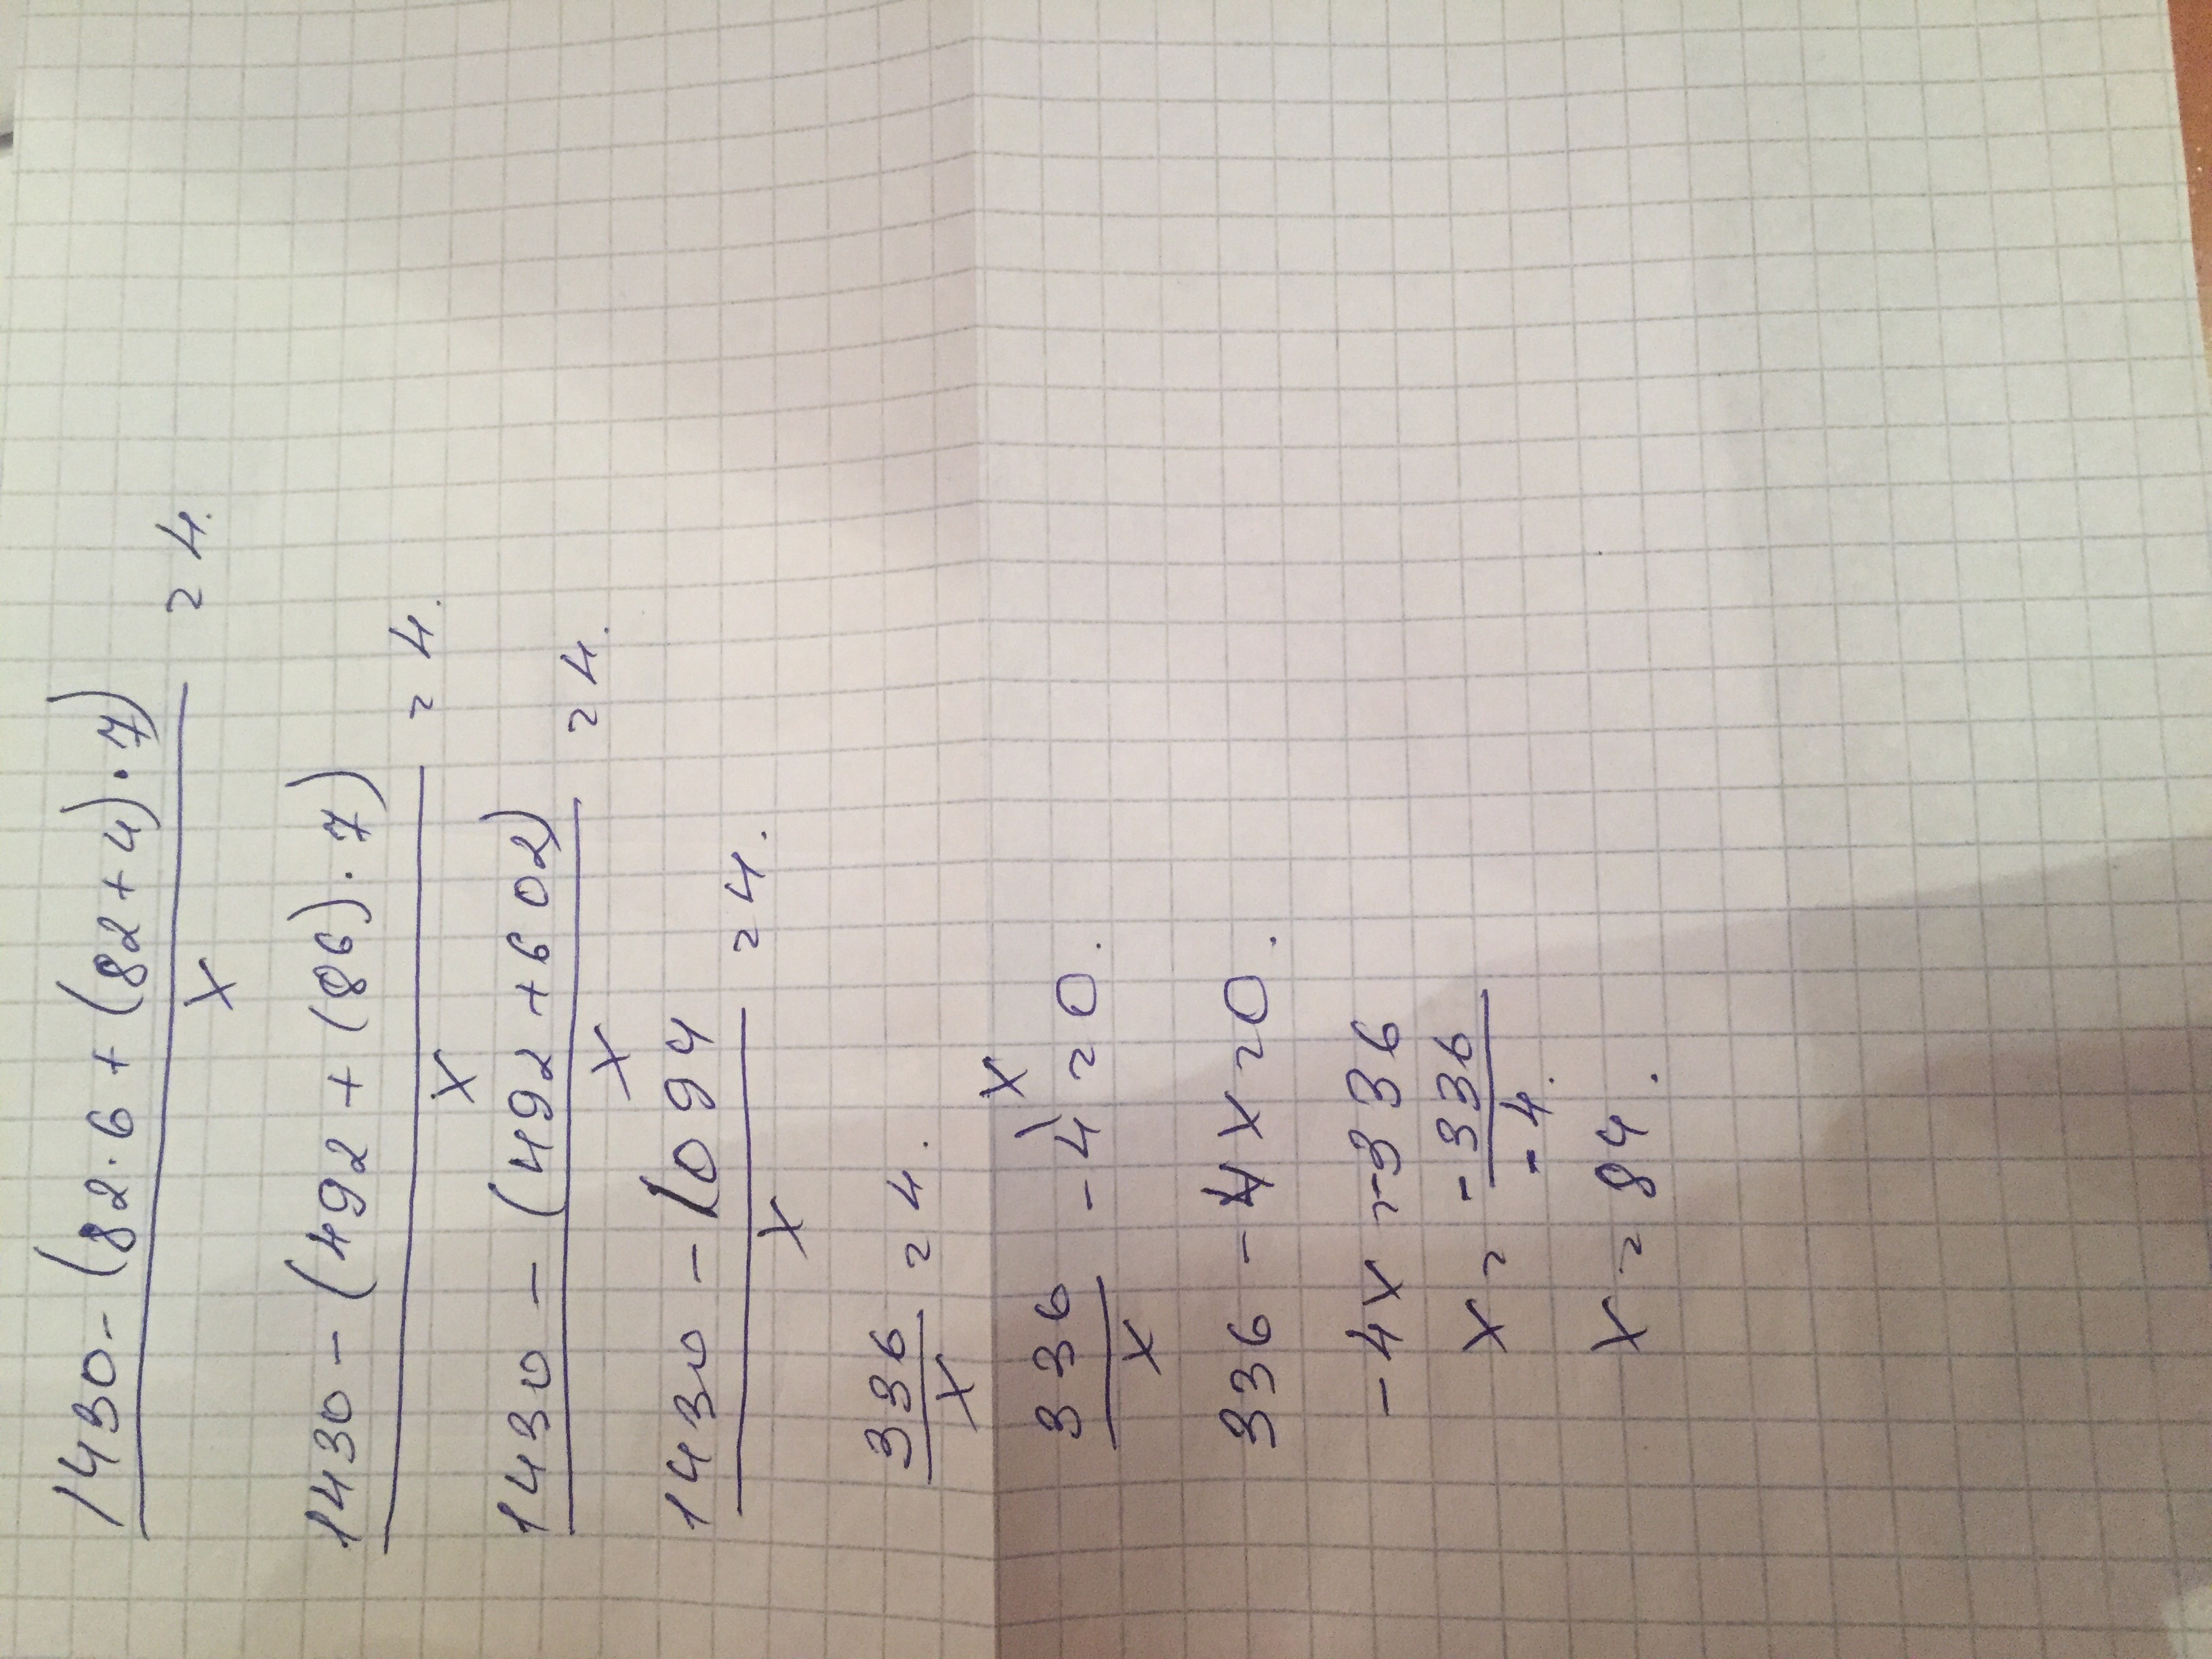 1430-(82·6+(82+4)·7)
x
=4.
1430-(492+(86)·7)
x
=4.
1430-(492+602)
x
=4.
1430-1094
x
=4.
336
x
=4.
336
x
-4\x=0.
336-4x=0.
-4x=-336
x=-336
-4.
x=84.